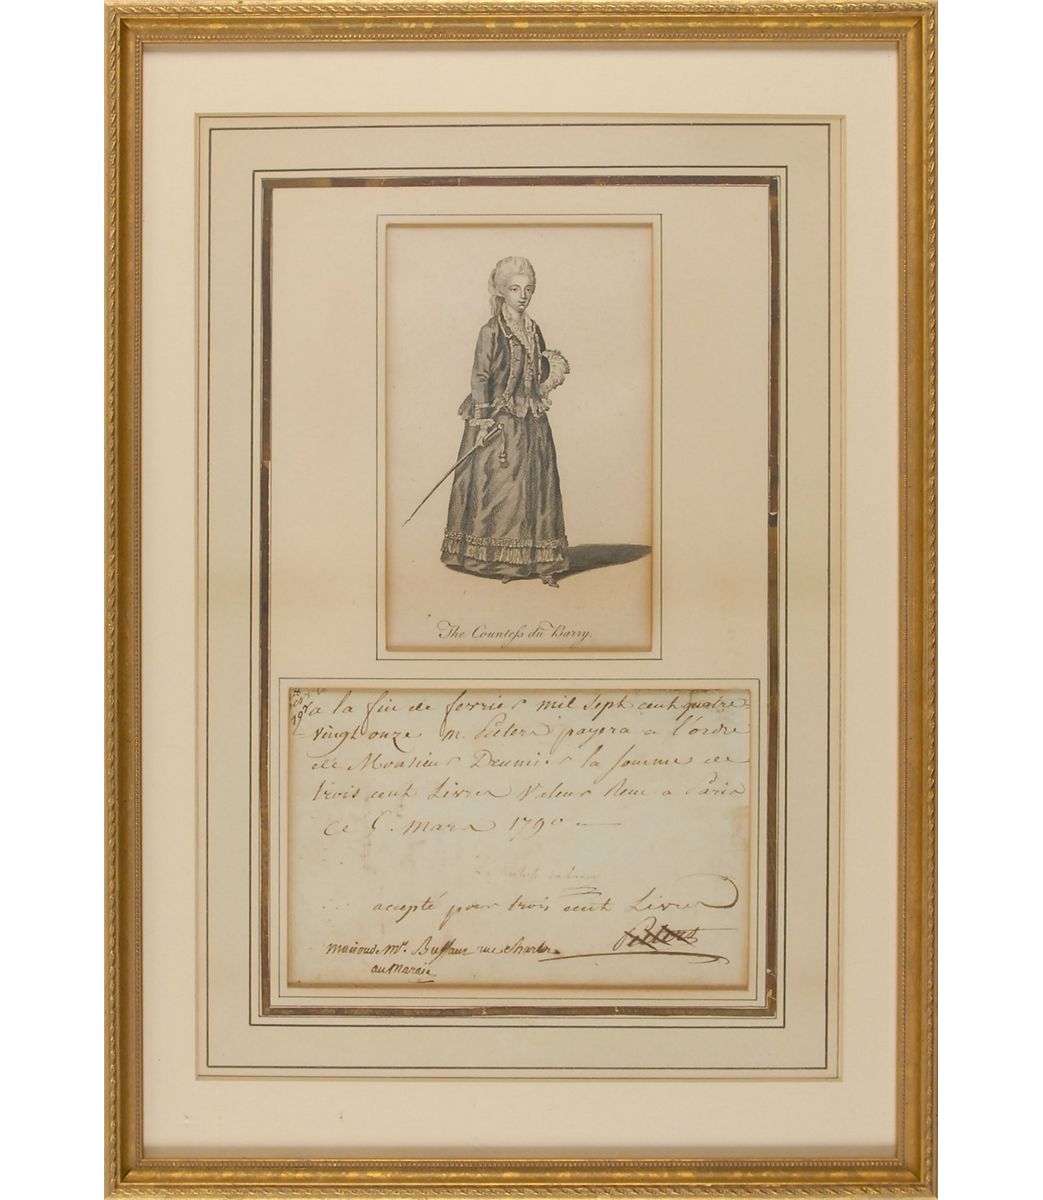 The Countess du Barry.
a la fin de fevrier mil sept cent quatre
vingt onze m. Peeters payera a l'ordre
de Monsieur Deumier la somme de
trois cent Livres Valeur Reçue a Paris
Ce 5. mars 1790
accepté pour trois cent Livres
Peeters
maison de Mr. Buffaut rue Charlo
au Marais